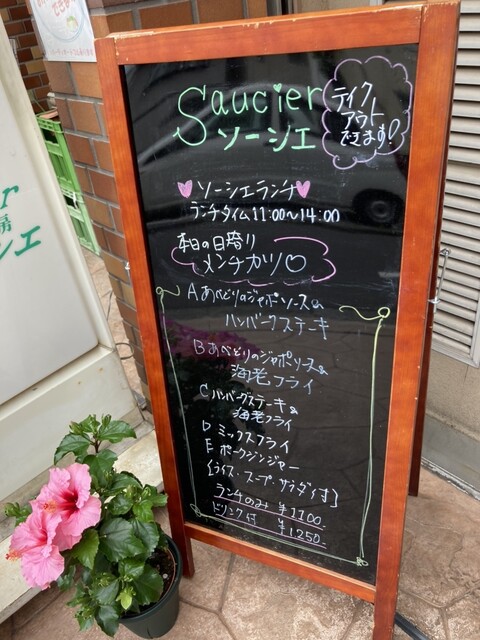 Saucier
ソーシエ
テイク
アウト
できます!
ソーシエランチ
ランチタイム 11:00〜14:00
本日の日替り
メンチカツ
A あべどりのジャポソース&
ハンバーグステーキ
B あべどりのジャポソース&
海老フライ
C ハンバーグステーキ&
海老フライ
D ミックスフライ
E ポークジンジャー
[ライス・スープ・サラダ付]
ランチのみ ¥1100.
ドリンク付 ¥1250.
r
房
シエ